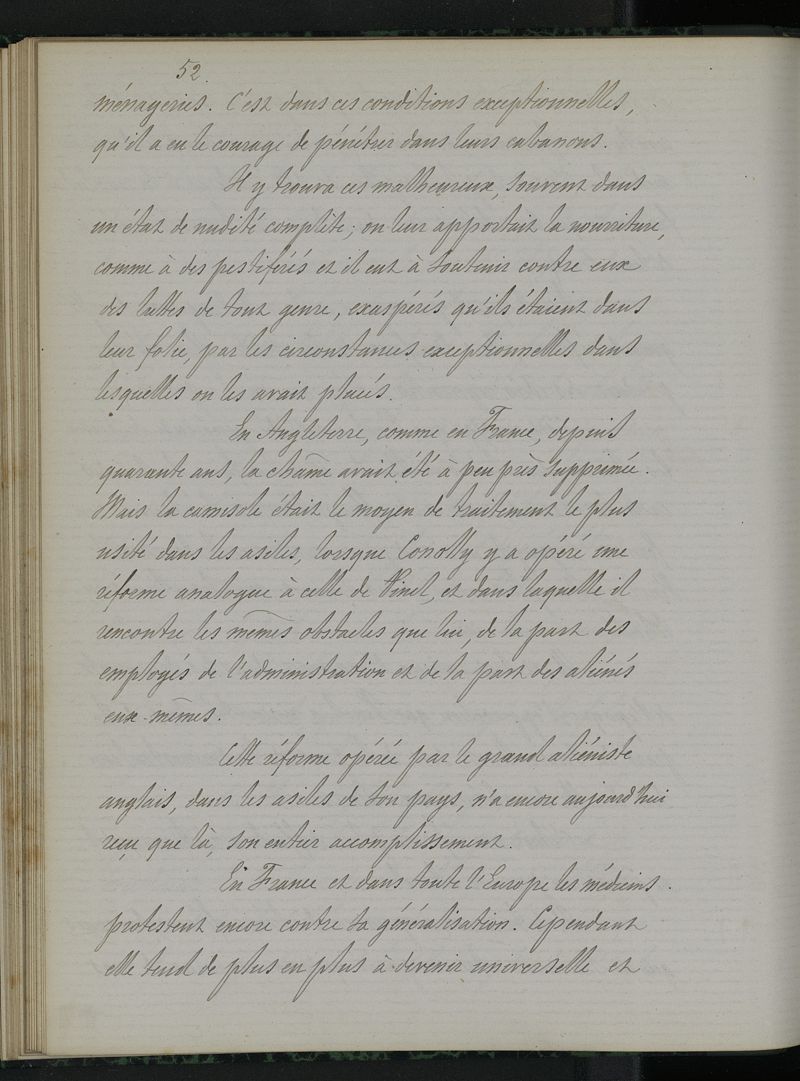 52.
ménageries. C'est dans ces conditions exceptionnelles,
qu'il a eu le courage de pénétrer dans leurs cabanons.
Il y trouva ces malheureux, souvent dans
un état de nudité complète; on leur apportait la nourriture,
comme à des pestiférés et il eut à soutenir contre eux
des luttes de tout genre, exaspérés qu'ils étaient dans
leur folie, par les circonstances exceptionnelles dans
lesquelles on les avait placés.
En Angleterre, comme en France, depuis
quarante ans, la chaîne avait été à peu près supprimée.
Mais la camisole était le moyen de traitement le plus
usité dans les asiles, lorsque Conolly y a opéré une
réforme analogue à celle de Pinel, et dans laquelle il
rencontre les mêmes obstacles que lui, de la part des
employés de l'administration et de la part des aliénés
eux-mêmes.
Cette réforme opérée par le grand aliéniste
anglais, dans les asiles de son pays, n'a encore aujourd'hui
reçu que là, son entier accomplissement.
En France et dans toute l'Europe les médecins
protestent encore contre sa généralisation. Cependant
elle tend de plus en plus à devenir universelle et